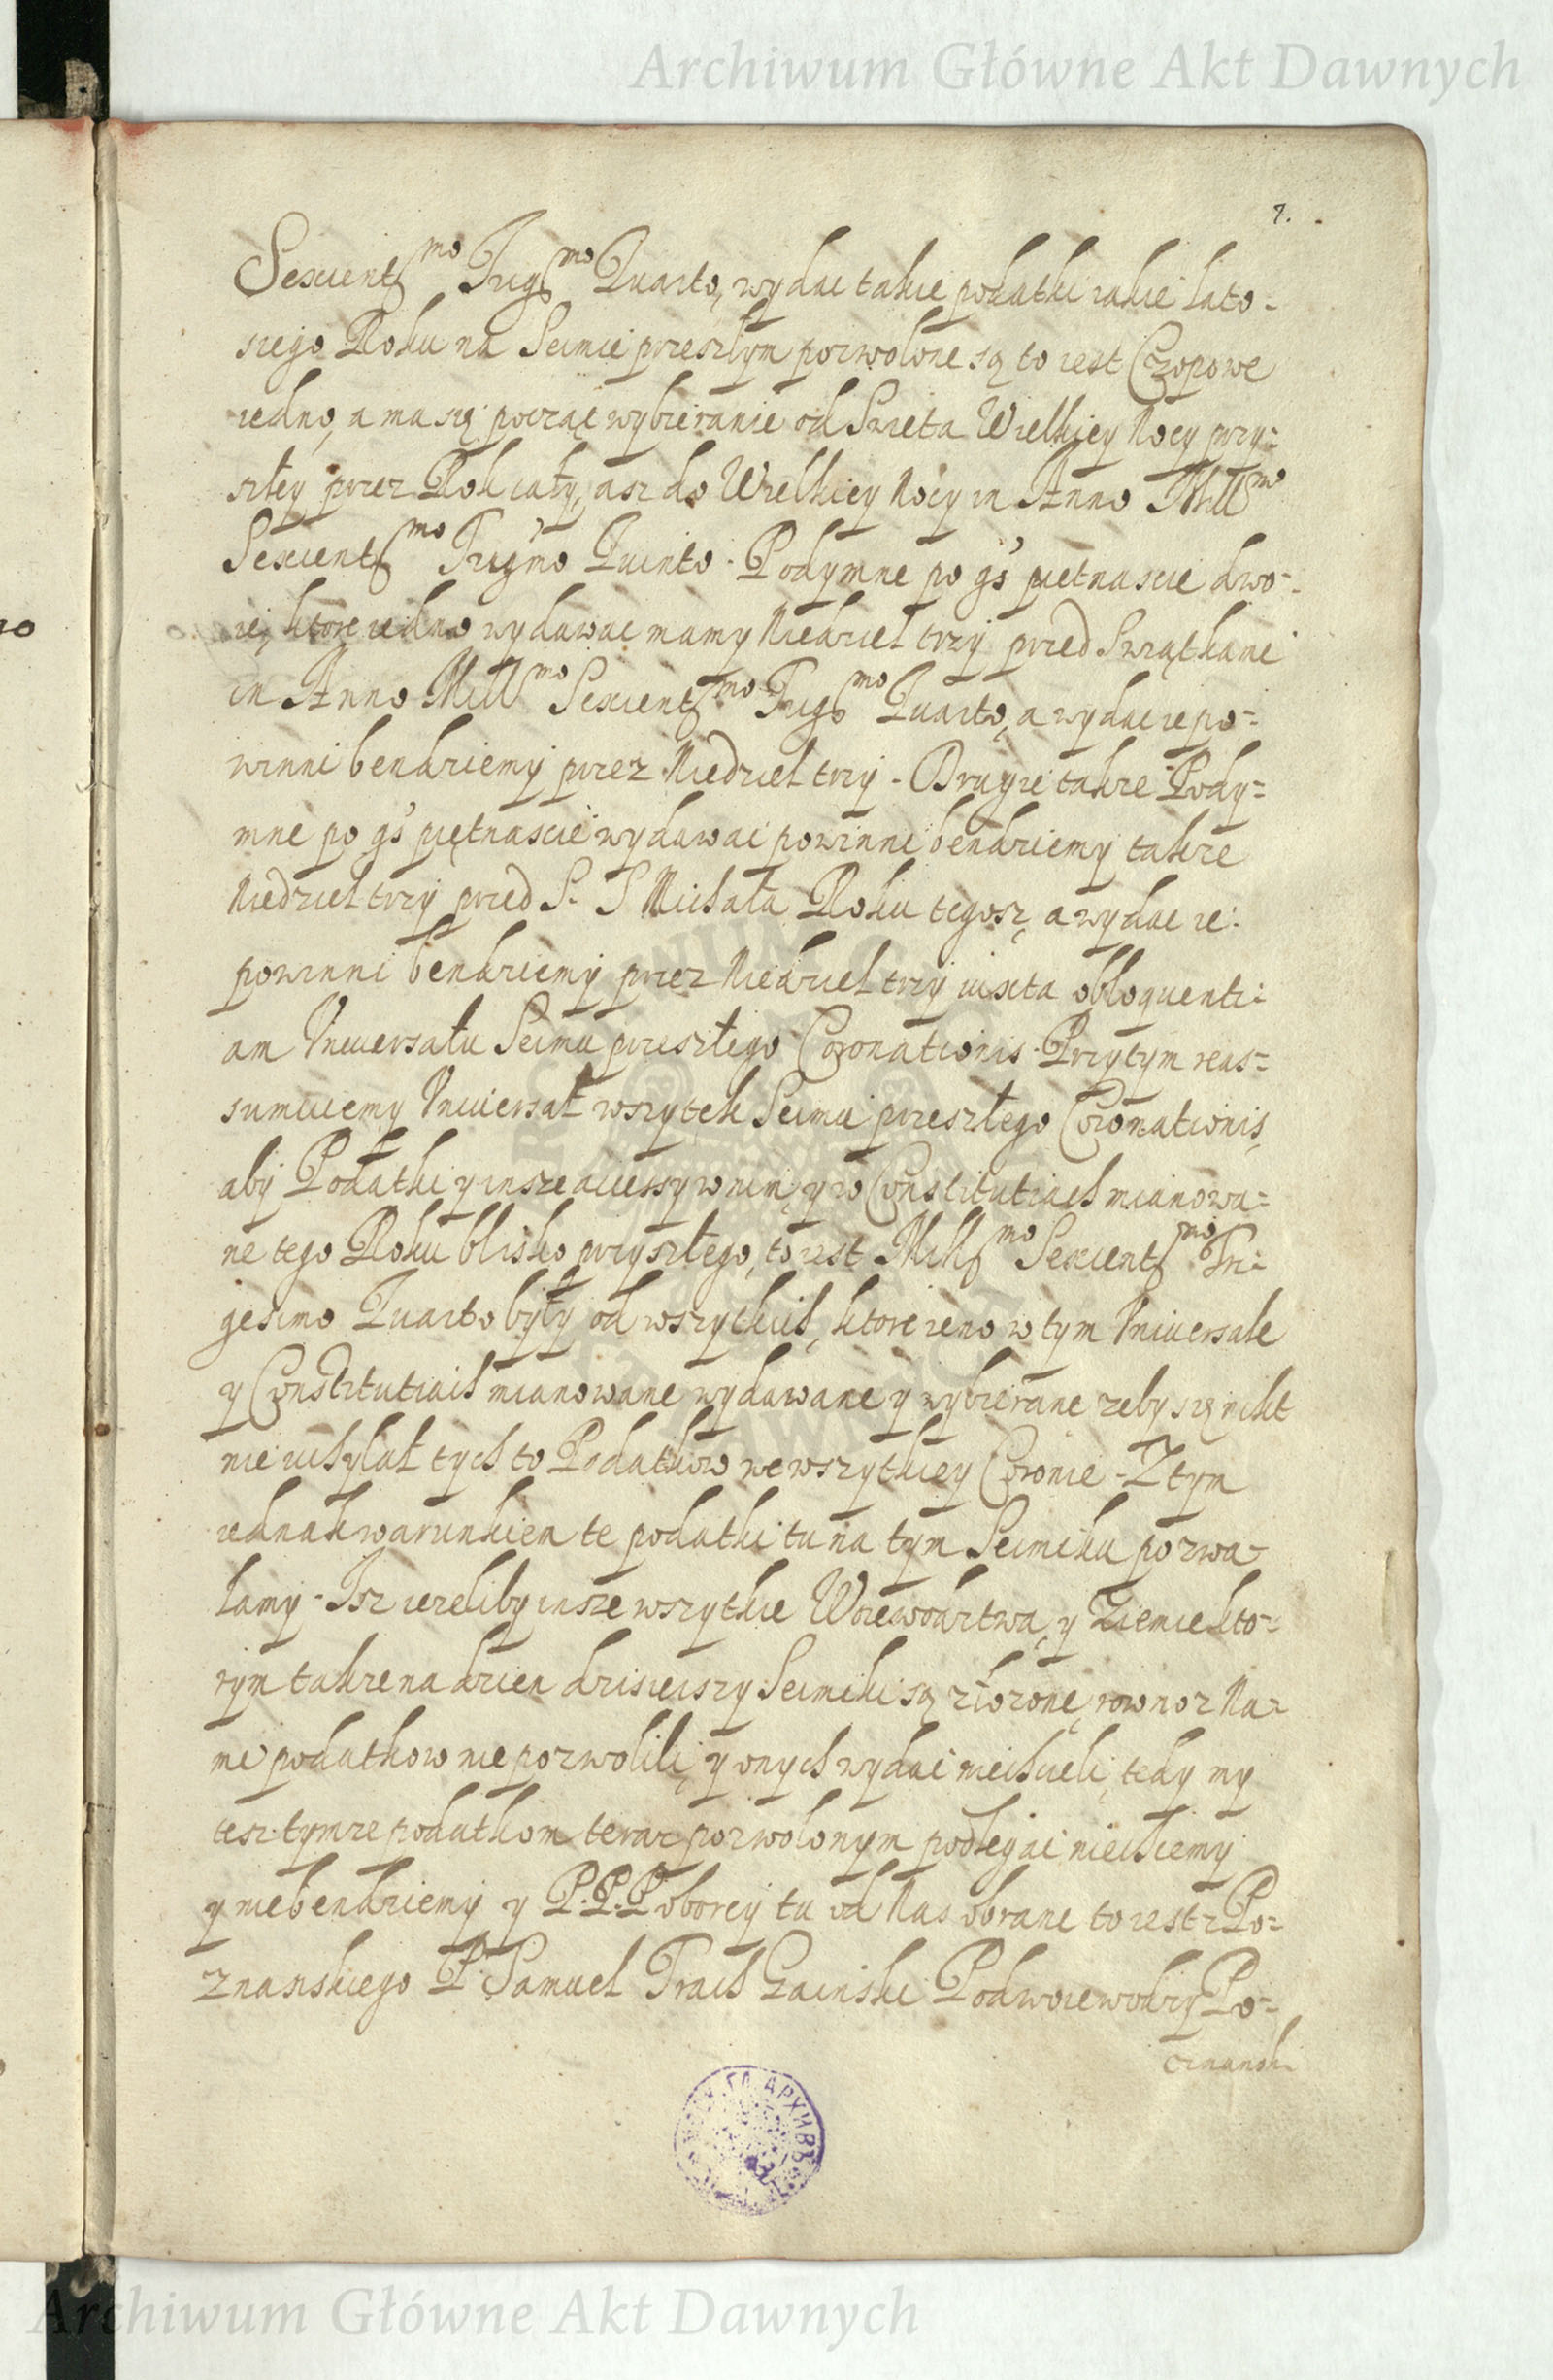 Archiwum Główne Akt Dawnych
7.
Sexcents^mo Trigs^mo Quarto, wydac takie podatki iakie lato-
szego Roku na Seimie przeszłym pozwolone są to iest Czopowe
iedno, a ma się począc wybieranie od Swieta Wielkiey Nocy przy=
szłey przez Rok cały, asz do Wielkiey Nocy in Anno Mill^mo
Sexcents^mo Trig'mo Quinto. Podymne po gs' pietnascie dwo-
ie, ktore iedno wydawac mamy Niedziel trzy przed Swiątkami
in Anno Mill^mo Sexcents^mo Trigs^mo Quarto, a wydac ie po=
winni bendziemy przez Niedziel trzy. Drugie takze Pody=
mne po gs' piętnascie wydawac powinni bendziemy takze
Niedziel trzy przed S. S Michała Roku tegosz, a wydac ie
powinni bendziemy przez Niedziel trzy iuxta obloquenti=
am Vniuersału Seimu przeszłego Coronationis. Przytym reas=
sumuiemy Vniuersał wszytek Seimu przeszłego Coronationis,
aby Podatki y insze accessy w nim, y w Constitutiach mianowa=
ne tego Roku blisko przyszłego, to iest Mills^mo Sexcents^mo Tri=
gesimo Quarto były od wszytkich, ktore ieno w tym Vniuersale
y Constitutiach mianowane wydawane y wybierane zeby się nikt
nie uchylał tych to Podatkow we wszytkiey Coronie. Z tym
iednak warunkiem te podatki tu na tym Seimiku pozwa=
lamy. Isz iezeliby insze wszytkie Woiewodztwa, y Ziemie kto=
rym takze na dzien dzisieiszy Seimiki są złozone, rowno z Na=
mi podatkow nie pozwolili, y onych wydac niechcieli, tedy my
tesz tymze podatkom teraz pozwolonym podlegac niechcemy
y niebendziemy y P.P.P oborcy tu od Nas obrane to iest z Po=
znanskiego P. Samuel Trach Gninski Podwoiewodzy Po=
znanski
Archiwum Główne Akt Dawnych